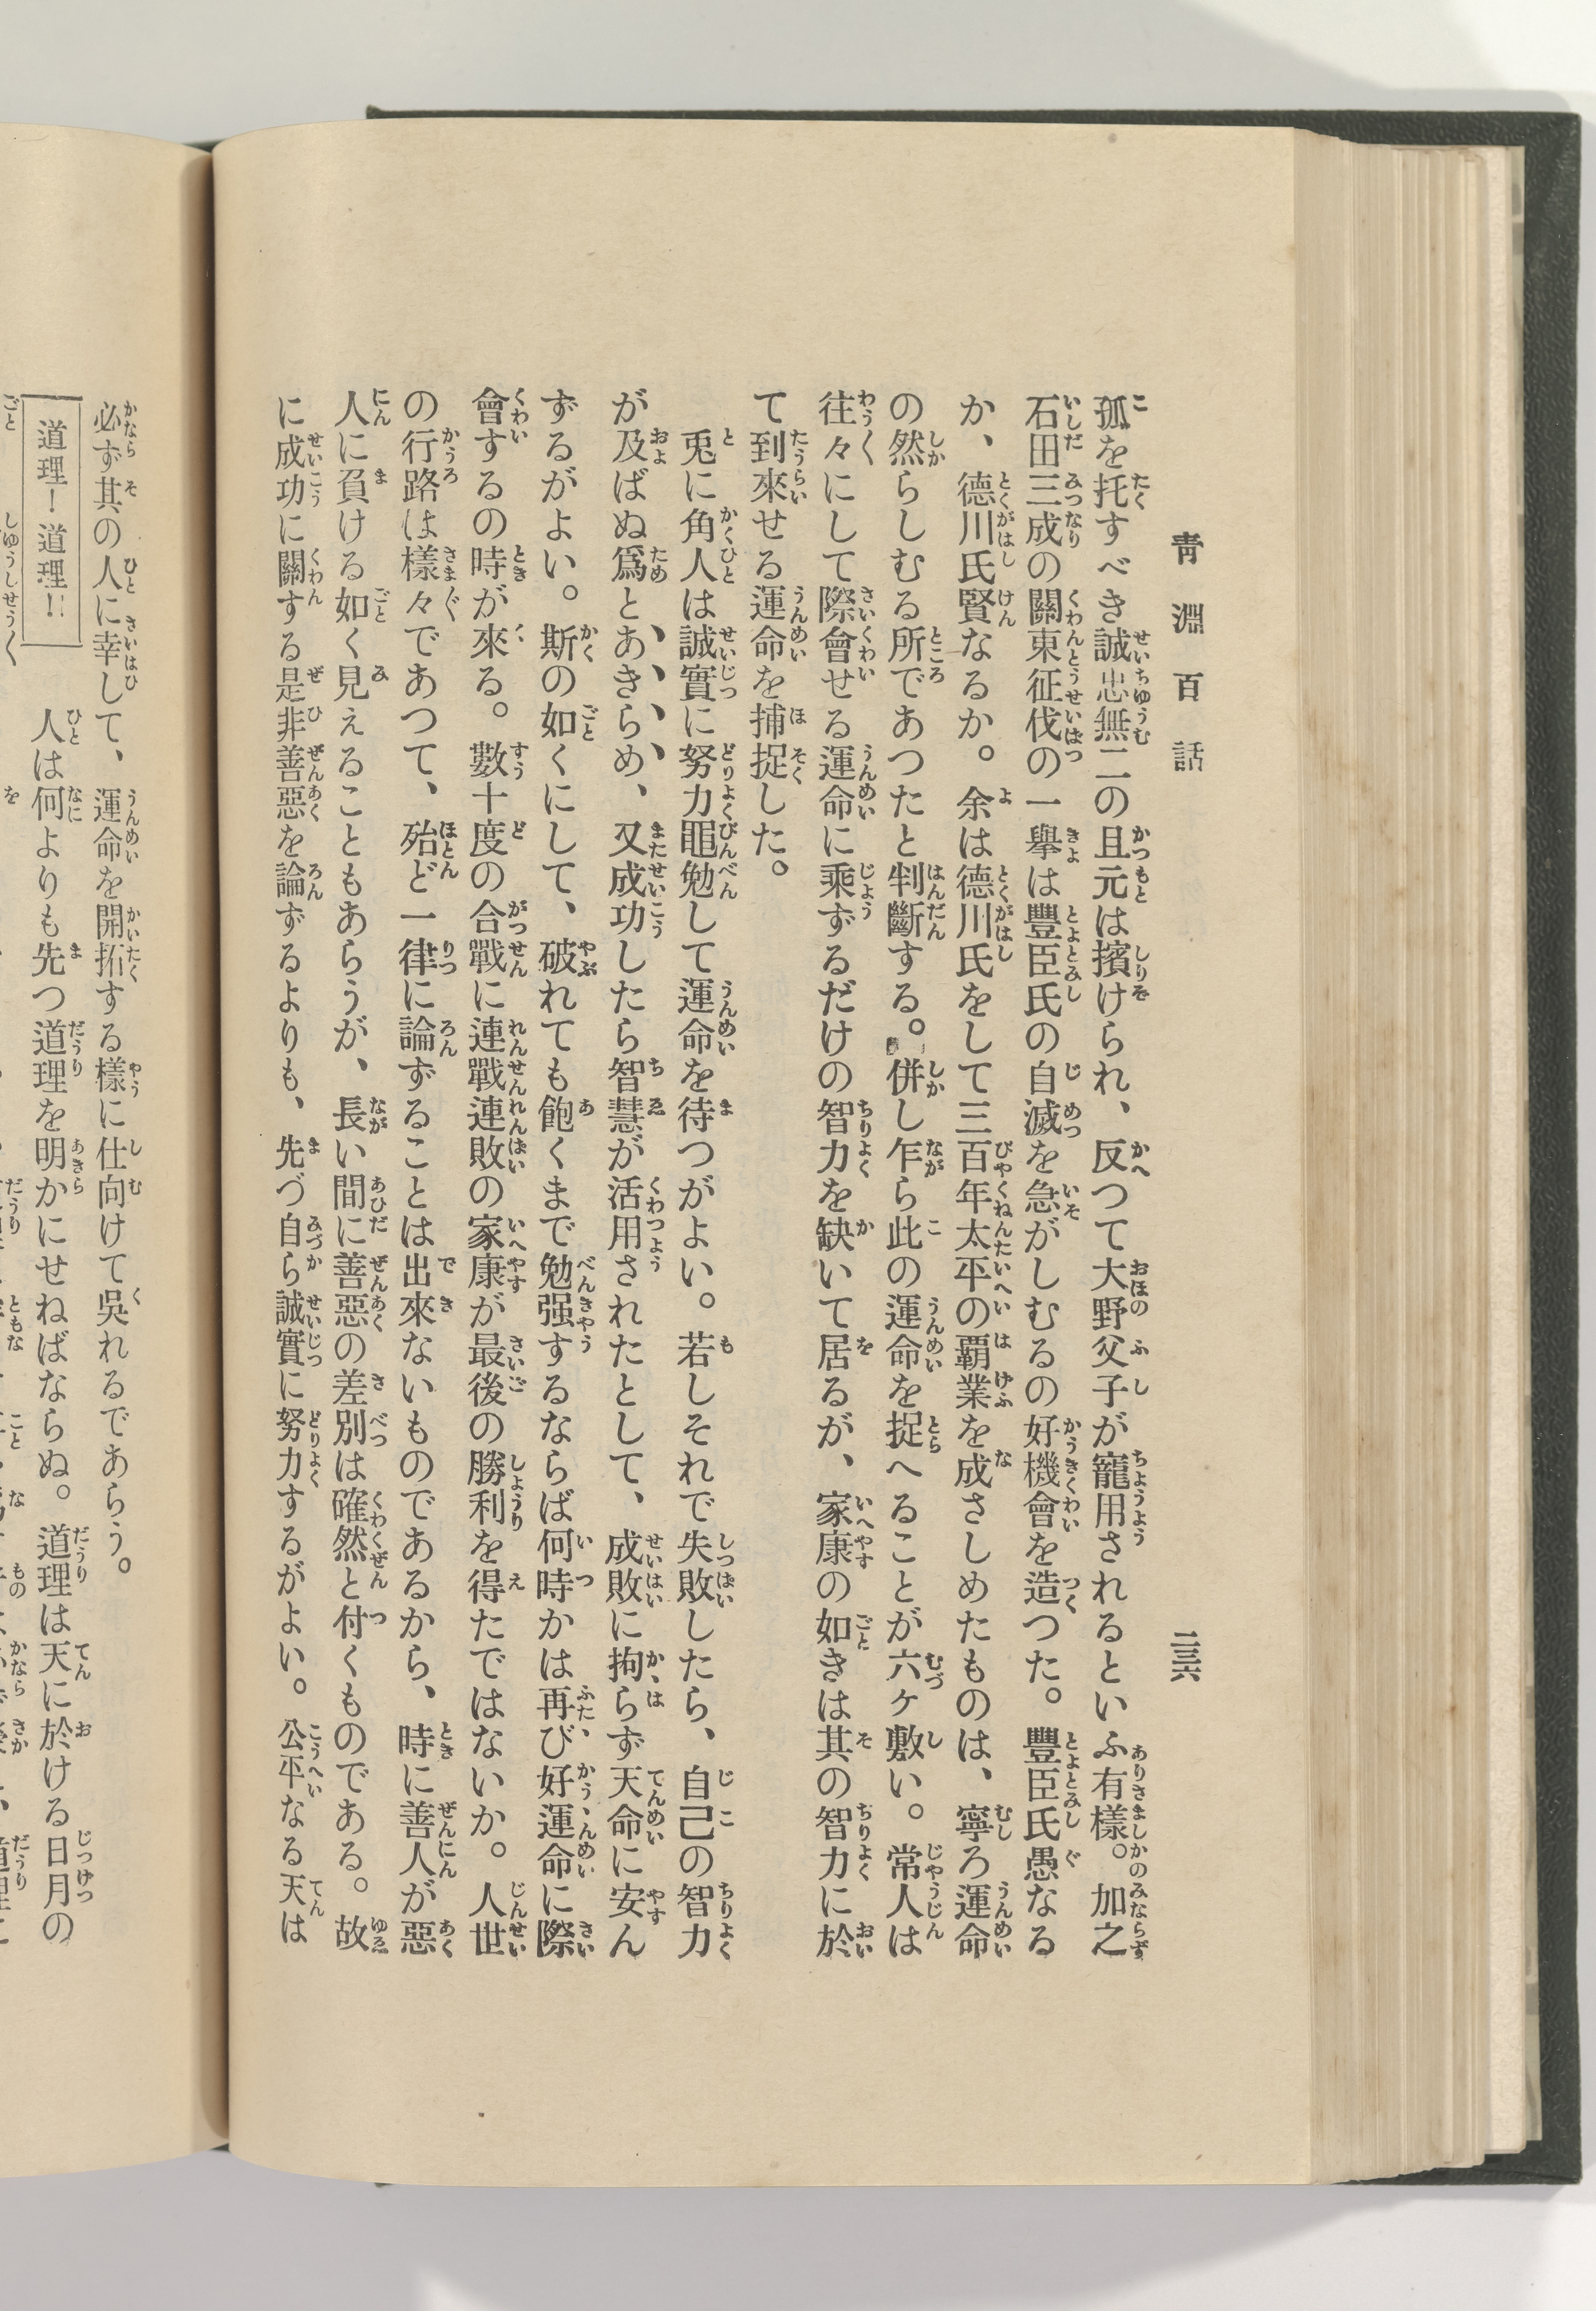 青淵百話
二三六
孤を托すべき誠忠無二の且元は擯けられ、反つて大野父子が寵用されるといふ有樣。加之
石田三成の關東征伐の一擧は豐臣氏の自滅を急がしむるの好機會を造つた。豐臣氏愚なる
か、德川氏賢なるか。余は德川氏をして三百年太平の覇業を成さしめたものは、寧ろ運命
の然らしむる所であつたと判斷する。併し乍ら此の運命を捉へることが六ケ敷い。常人は
往々にして際會せる運命に乘ずるだけの智力を缺いて居るが、家康の如きは其の智力に於
て到來せる運命を捕捉した。
兎に角人は誠實に努力黽勉して運命を待つがよい。若しそれで失敗したら、自己の智力
が及ばぬ爲とあきらめ、又成功したら智慧が活用されたとして、成敗に拘らず天命に安ん
ずるがよい。斯の如くにして、破れても飽くまで勉强するならば何時かは再び好運命に際
會するの時が來る。數十度の合戰に連戰連敗の家康が最後の勝利を得たではないか。人世
の行路は樣々であつて、殆ど一律に論ずることは出來ないものであるから、時に善人が惡
人に負ける如く見えることもあらうが、長い間に善惡の差別は確然と付くものである。故
に成功に關する是非善惡を論ずるよりも、先づ自ら誠實に努力するがよい。公平なる天は
必ず其の人に幸して、運命を開拓する樣に仕向けて吳れるであらう。
道理！道理!!
人は何よりも先つ道理を明かにせねばならぬ。道理は天に於ける日月の